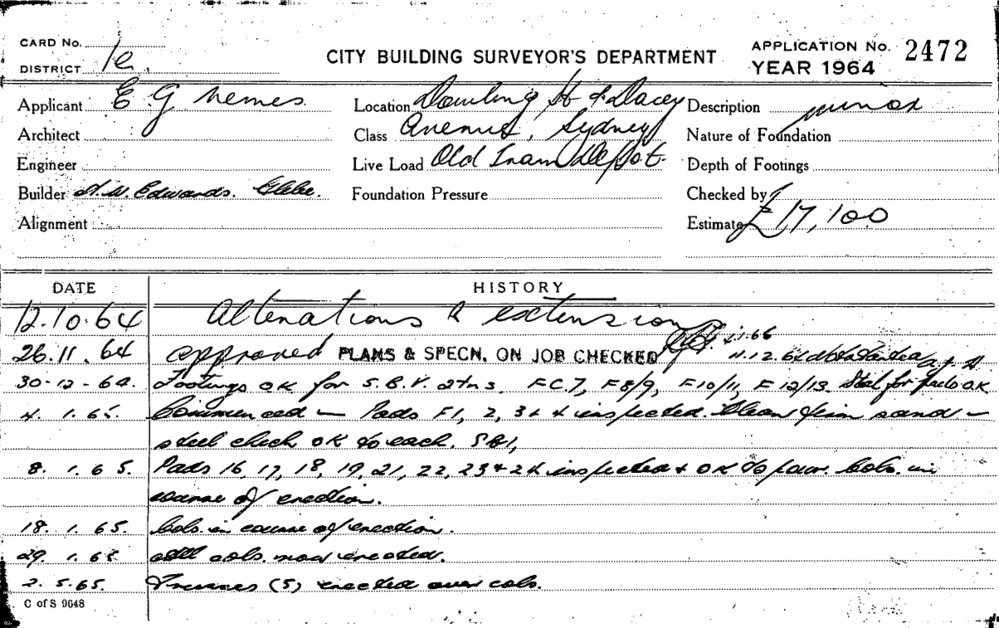 CARD No.
DISTRICT 1e.
CITY BUILDING SURVEYOR'S DEPARTMENT
APPLICATION No. 2472
YEAR 1964
Applicant E G Nemes
Location Dowling St & Dacey
Description minor
Architect
Class Avenue, Sydney
Nature of Foundation
Engineer
Live Load Old Tram Depot.
Depth of Footings
Builder A. W. Edwards. Glebe.
Foundation Pressure
Checked by
Alignment
Estimate £17,100
DATE HISTORY
12.10.64 Alterations & extensions
26.11.64 approved PLANS & SPECN. ON JOB CHECKED
30-12-64. Footings OK for S.B.V. FC7, F8/9, F10/11, F12/13. Steel for pads OK
4.1.65. Commenced - Pads F1, 2, 3 & 4 inspected. Clean firm sand -
steel check OK to each. SB1,
8.1.65. Pads 16, 17, 18, 19, 21, 22, 23 & 24 inspected & OK to pour. Cols. in
course of erection.
18.1.65. Cols. in course of erection.
29.1.65 All cols. now erected.
2.5.65. Trusses (5) erected over cols.
C of S 9648